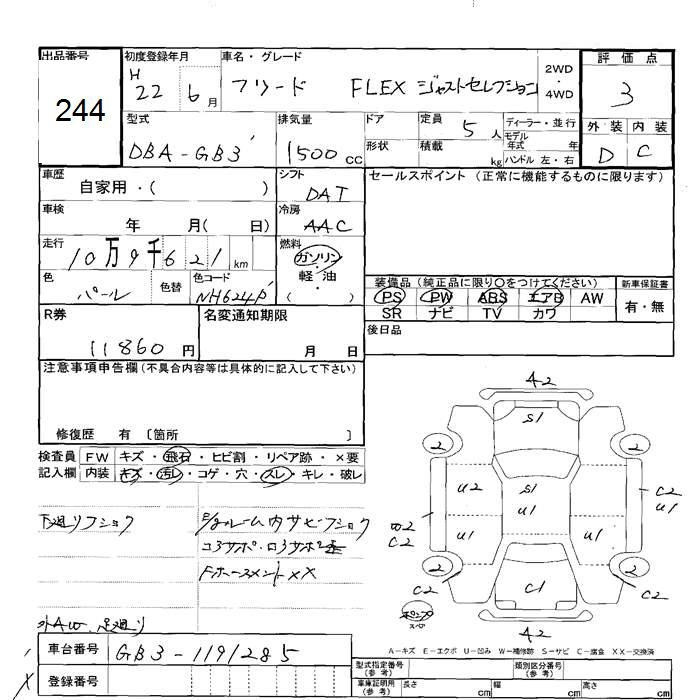 出品番号
244
初度登録年月
H 22 6月
車名・グレード
フリード FLEX ジャストセレクション
2WD
・
4WD
評価点
3
外装 内装
D C
型式
DBA-GB3
排気量
1500cc
ドア
形状
定員 5人
積載 kg
ディーラー・並行
モデル
年式 年
ハンドル 左・右
車歴
自家用・( )
シフト
DAT
セールスポイント (正常に機能するものに限ります)
車検
年 月( 日)
冷房
AAC
走行
10万9千621km
燃料
ガソリン
・
軽・油
( )
色
パール
色替
色コード
NH624P
装備品 (純正品に限り○をつけてください)
PS PW ABS エアB AW
SR ナビ TV カワ
新車保証書
有・無
R券
11860円
名変通知期限
月 日
後日品
注意事項申告欄(不具合内容等は具体的に記入して下さい)
修復歴 有 〔箇所 〕
検査員 FW キズ・飛石・ヒビ割・リペア跡・×要
記入欄 内装 キズ・汚レ・コゲ・穴・スレ・キレ・破レ
下廻リフショク
ルーム内サビフショク
コアサポ・ロアサポ
Fホースメント××
外AW 足廻リ
A2
S1
2 2
U2 S1 C2
U1 U1
W2 U1 U1
C2
2 2
C2 C1 C2
スペア
A2
A-キズ E-エクボ U-凹み W-補修跡 S-サビ C-腐食 XX-交換済
車台番号
GB3-1191285
登録番号
型式指定番号
(参考)
類別区分番号
(参考)
車庫証明用
(参考)
長さ cm 幅 cm 高さ cm